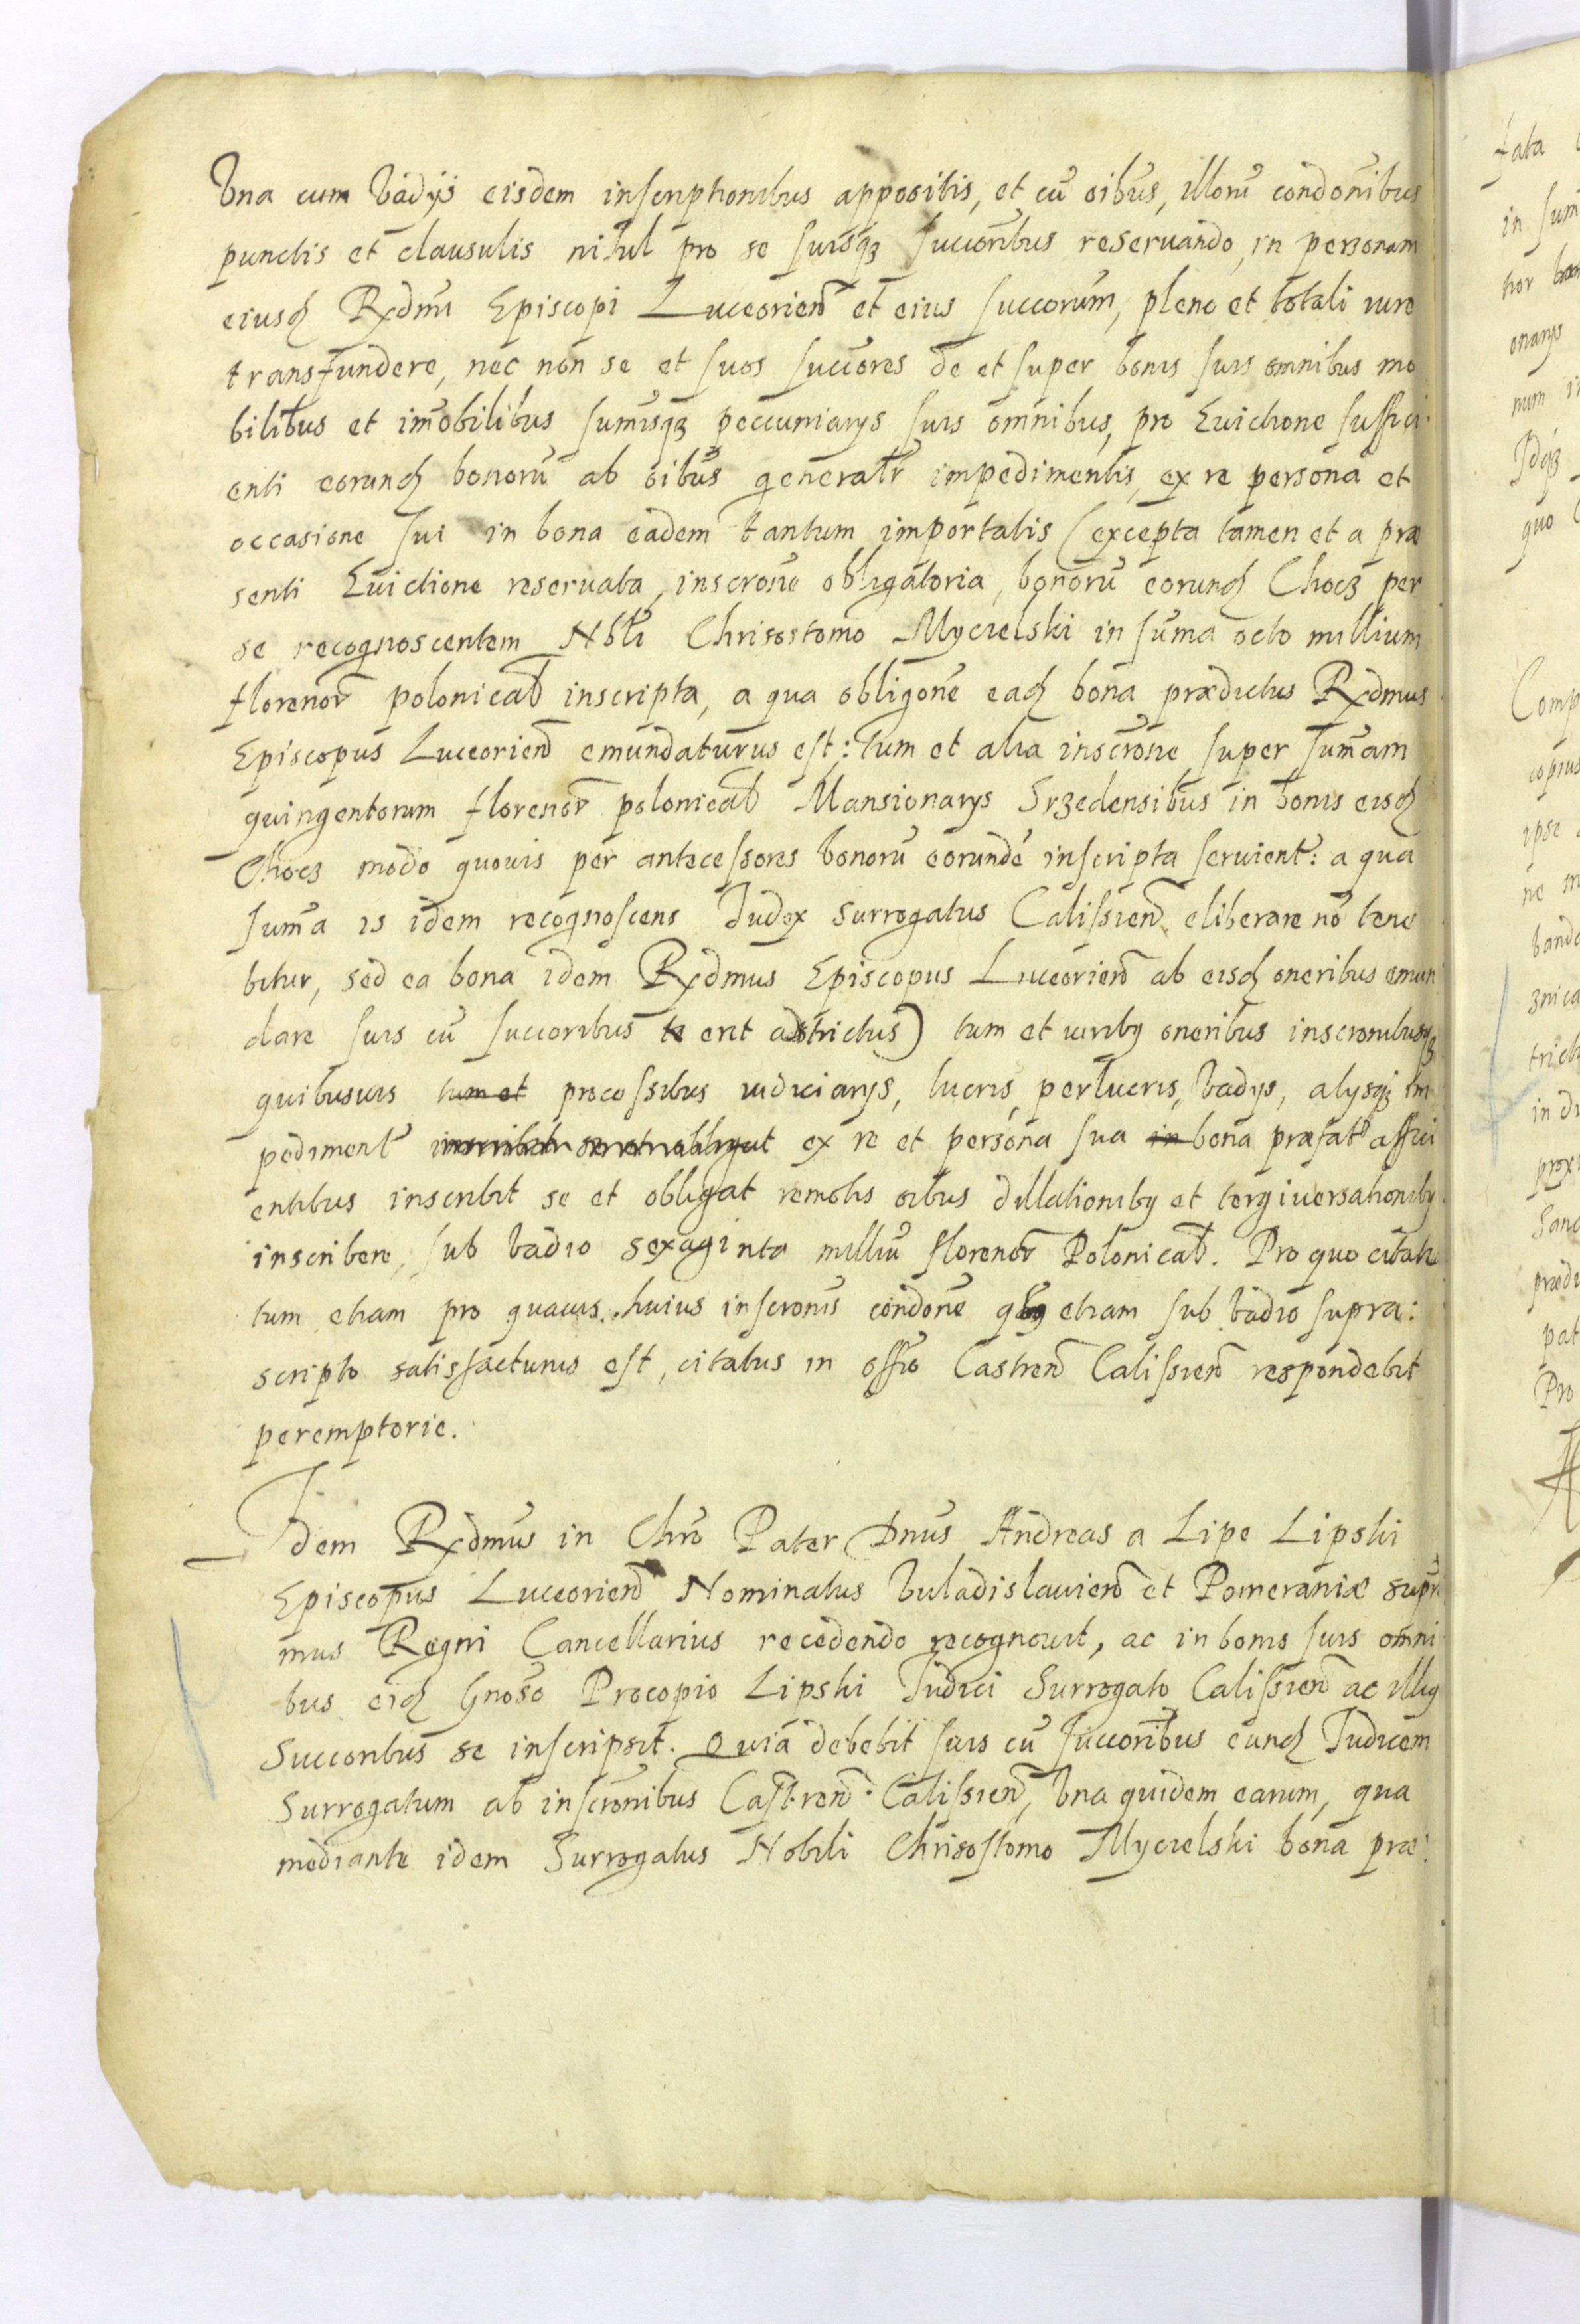 Vna cum Vadijs eisdem inscriptionibus appositis, et cũ oibus, illorũ condõnibus
punctis et clausulis nihil pro se suisqȝ succoribus reseruando, in personam
eiusd Rxdmi Episcopi Luceorien et eius succorum, pleno et totali iure
transfundere, nec non se et suos succores de et super bonis suis omnibus mo
bilibus et imobilibus sumisqȝ peccuniarys suis omnibus, pro Euictione suffici
enti eorund bonorũ ab oibus generalr impedimentis, ex re persona et
occasione sui in bona eadem tantum importatis (excepta tamen et a præ
senti Euictione reseruata, inscrone obligatoria, bonorũ eorund Chocz per
se recognoscentem Nbli Chrisostomo Mycielski in suma octo millium
florenor polonical inscripta, a qua obligone ead bona prædictus Rxdmus
Episcopus Luceorien emundaturus est: tum et alia inscrone super sumam
quingentorum florenor polonical Mansionarys Srzedensibus in bonis eisd
Chocz modo quouis per antecessores bonorũ eorundẽ inscripta seruient: a qua
suma is idem recognoscens Judex Surrogatus Calissien eliberare nõ tene
bitur, sed ea bona idem Rxdmus Episcopus Luceorien ab eisd oneribus emun
dare suis cũ succoribus te erit adstrictus) tum et oneribus inscronibusqȝ
quibusuis tum et processibus iudiciarys, lucris, perlucris, Vadys, alysqȝ im
pediment inscribit se et obligat ex re et persona sua in bona præfat affici
entibus inscribit se et obligat remotis oibus dillationiby et tergiuersationiby
inscribere, sub Vadio sexaginta milliũ florenor Polonical. Pro quo
tum etiam pro quauis huius inscronis condone etiam sub Vadio supra:
scripto satisfacturus est, citatus in offio Castren Calissien respondebit
peremptorie.
Idem Rxdmus in Chro Pater Dnus Andreas a Lipe Lipski
Episcopus Luceorien Nominatus Vuladislauien et Pomeraniæ supr
mus Regni Cancellarius recedendo recognouit, ac in bonis suis omni
bus eid Gnoso Procopio Lipski Judici Surrogato Calissien ac illiy
Succoribus se inscripsit. Quia debebit suis cũ succoribus eund Judicem
Surrogatum ab inscronibus Castren Calissien, Vna quidem earum, qua
mediante idem Surrogatus Nobili Chrisostomo Mycielski bona præ: